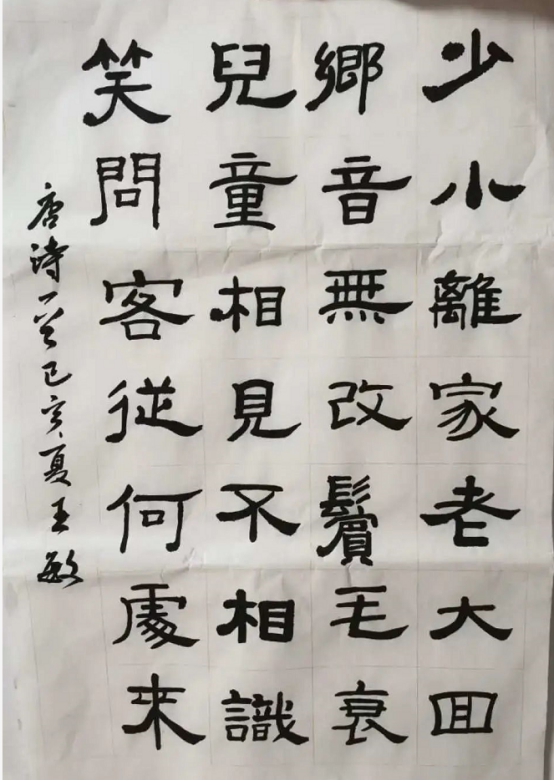 少小離家老大回
鄉音無改鬢毛衰
兒童相見不相識
笑問客從何處來
唐詩一首己亥夏王敏